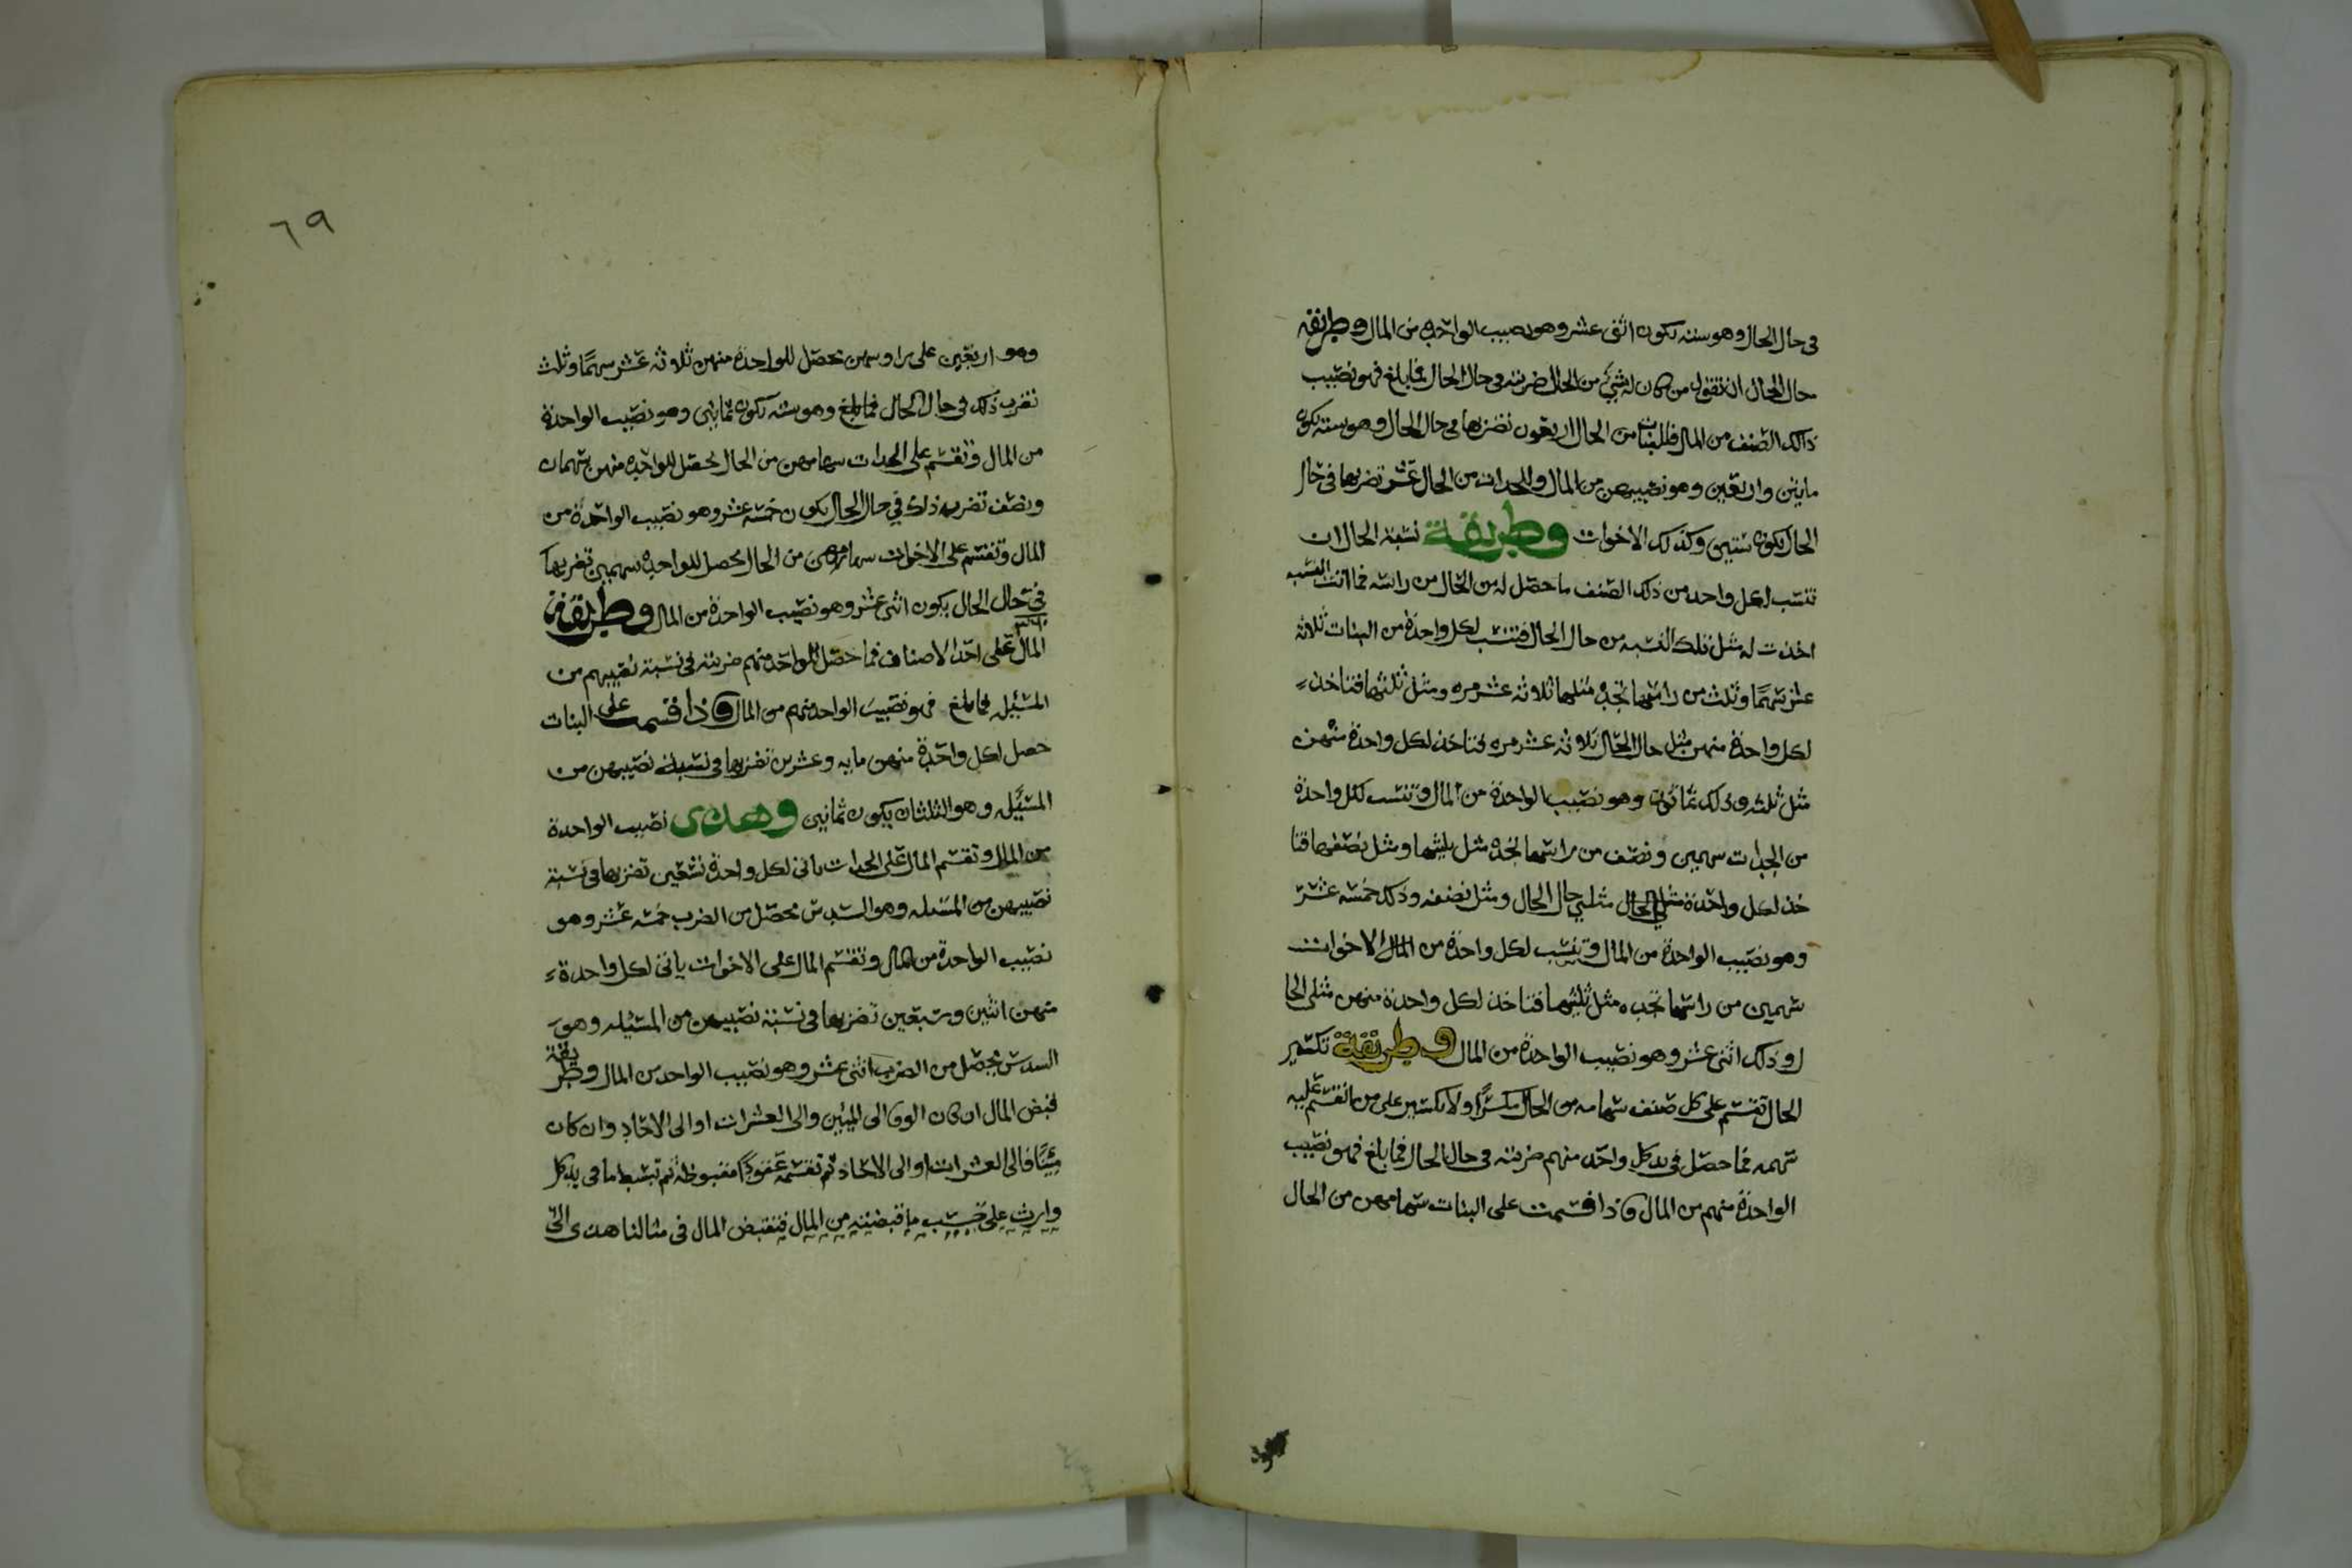 في حال الحال وهو سته يكون اثنى عشر وهو نصيب الواحده من المال وطريقه
حال الحال ان تقول من كان له شيء من الحال ضربته في حال الحال فما بلغ فهو نصيب
ذالك الصنف من المال فللبنات من الحال اربعون تضربها في حال الحال وهو سته يكون
مايتين واربعين وهو نصيبهن من المال وللجدات من الحال عشر تضربها في حال
الحال يكون ستين وكذلك الاخوات وطريقة نسبة الحال ان
تنسب لكل واحد من ذلك الصنف ما حصل له من الحال من راسه فما اتت النسبه
اخذت له مثل تلك النسبه من حال الحال فتنسب لكل واحدة من البنات ثلاثه
عشر سهمًا وثلث من راسها تجده مثلها ثلاثه عشر مره ومثل ثلثها فتاخذ
لكل واحدة منهن مثل حال الحال ثلاثه عشر مره فتاخذ لكل واحدة منهن
مثل ثلثه وذلك ثمانون وهو نصيب الواحدة من المال وتنسب لكل واحدة
من الجدات سهمين ونصف من راسها تجده مثل مثليها ومثل نصفها فتا
خذ لكل واحدة مثلي حال الحال ومثل نصفه وذلك خمسه عشر
وهو نصيب الواحدة من المال وتنسب لكل واحدة من الاخوات
سهمين من راسها تجده مثل مثليها فتاخذ لكل واحدة منهن مثلي الحا
ل وذلك اثنى عشر وهو نصيب الواحدة من المال وطريقة تكسير
الحال تقسم على كل صنف سهامه من الحال مكسرًا ولا تكسير على من تنقسم عليه
سهمه فما حصل في يد كل واحد منهم ضربته في حال الحال فما بلغ فهو نصيب
الواحدة منهم من المال واذا قسمت على البنات سهامهن من الحال
٦٩
وهو اربعين على راوسهن تحصل للواحدة منهن ثلاثه عشر سهمًا وثلث
تضرب ذلك في حال الحال فما بلغ وهو سته يكون ثمانين وهو نصيب الواحدة
من المال وتقسم على الجدات سهامهن من الحال يحصل للواحده منهن سهمان
ونصف تضرب ذلك في حال الحال يكون خمسه عشر وهو نصيب الواحدة من
المال وتقسم على الاخوات سهامهن من الحال يحصل للواحده سهمين تضربها
في حال الحال يكون اثنى عشر وهو نصيب الواحدة من المال وطريقة
المال على احد الاصناف فما حصل للواحد منهم ضربته في نسبة نصيبهم من
المسئله فما بلغ فهو نصيب الواحد منهم من المال واذا قسمت على البنات
حصل لكل واحدة منهن مايه وعشرين تضربها في نسبة نصيبهن من
المسئله وهو الثلثان يكون ثمانين وهذى نصيب الواحدة
من المال وتقسم المال على الجدات ياتي لكل واحدة تسعين تضربها في نسبة
نصيبهن من المسئله وهو السدس تحصل من الضرب خمسه عشر وهو
نصيب الواحدة من المال وتقسم المال على الاخوات ياتي لكل واحدة
منهن اثنين وسبعين تضربها في نسبة نصيبهن من المسئله وهو
السدس يحصل من الضرب اثنى عشر وهو نصيب الواحد من المال وطريقة
قبض المال ان كان الوف الى الميئين والى العشرات او الى الاحاد وان كان
مئينًا فالى العشرات او الى الاحاد ثم تقسمه عقودًا مقبوظة ثم تبسط ما في يد كل
وارث على حسب ما قبضته من المال فتقبض المال في مثالنا هذى الى